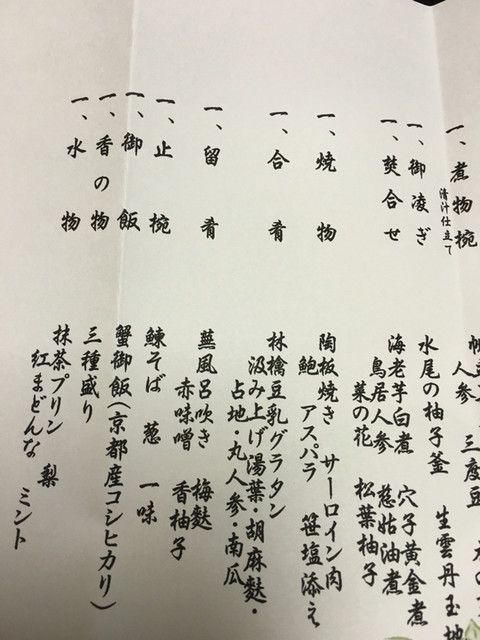 一、煮物椀
清汁仕立て
人参 三度豆
一、御凌ぎ
水尾の柚子釜 生雲丹玉地
一、焚合せ
海老芋白煮 穴子黄金煮
鳥居人参 慈姑油煮
菜の花 松葉柚子
一、焼物
陶板焼き サーロイン肉
鮑 アスパラ 笹塩添え
一、合肴
林檎豆乳グラタン
汲み上げ湯葉・胡麻麩・
占地・丸人参・南瓜
一、留肴
蕪風呂吹き 梅麩
赤味噌 香柚子
一、止椀
鰊そば 葱 一味
一、御飯
蟹御飯(京都産コシヒカリ)
一、香の物
三種盛り
一、水物
抹茶プリン 梨 ミント
紅まどんな